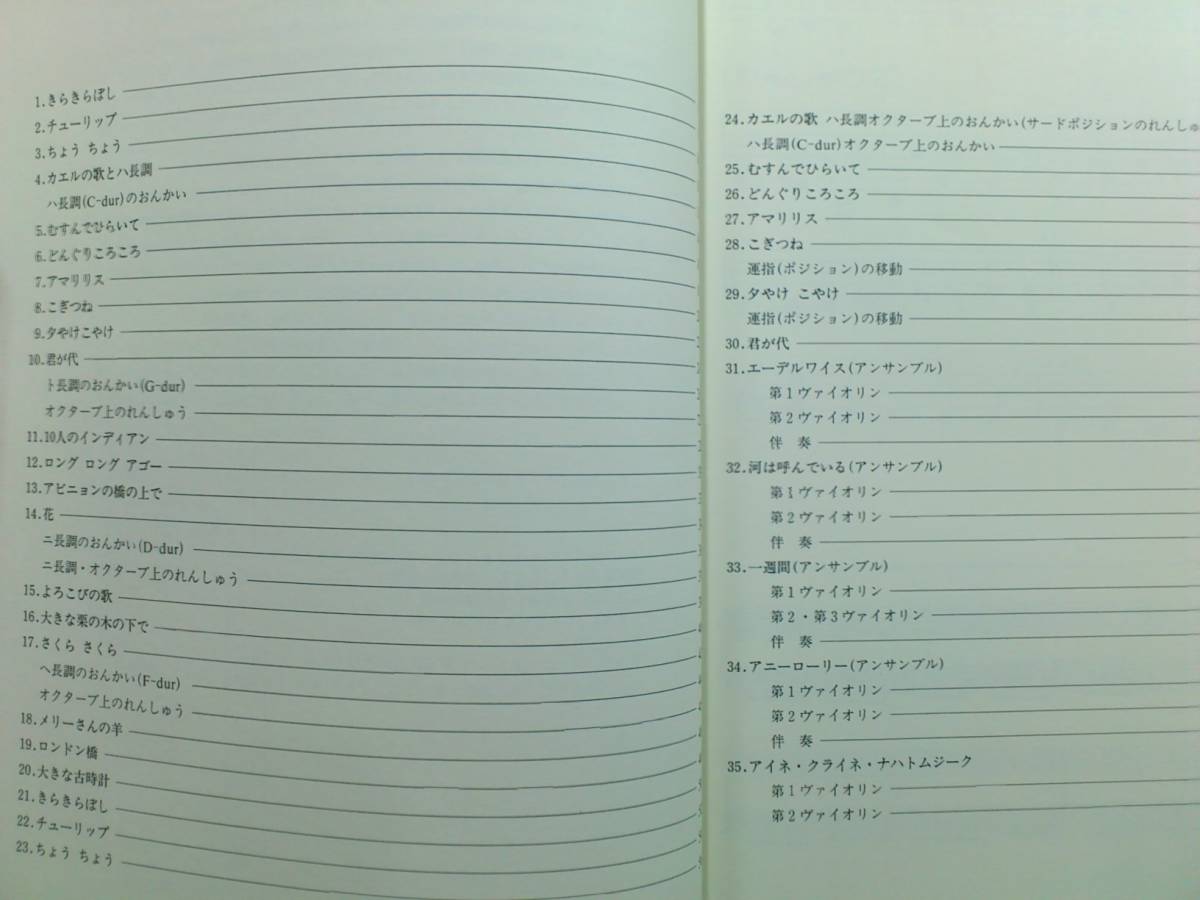 1.きらきらぼし
2.チューリップ
3.ちょう ちょう
4.カエルの歌とハ長調
ハ長調(C-dur)のおんかい
5.むすんでひらいて
6.どんぐりころころ
7.アマリリス
8.こぎつね
9.夕やけこやけ
10.君が代
ト長調のおんかい(G-dur)
オクターブ上のれんしゅう
11.10人のインディアン
12.ロング ロング アゴー
13.アビニョンの橋の上で
14.花
ニ長調のおんかい(D-dur)
ニ長調・オクターブ上のれんしゅう
15.よろこびの歌
16.大きな栗の木の下で
17.さくら さくら
ヘ長調のおんかい(F-dur)
オクターブ上のれんしゅう
18.メリーさんの羊
19.ロンドン橋
20.大きな古時計
21.きらきらぼし
22.チューリップ
23.ちょう ちょう
24.カエルの歌 ハ長調オクターブ上のおんかい(サードポジションのれんしゅ
ハ長調(C-dur)オクターブ上のおんかい
25.むすんでひらいて
26.どんぐりころころ
27.アマリリス
28.こぎつね
運指(ポジション)の移動
29.夕やけ こやけ
運指(ポジション)の移動
30.君が代
31.エーデルワイス(アンサンブル)
第1ヴァイオリン
第2ヴァイオリン
伴 奏
32.河は呼んでいる(アンサンブル)
第1ヴァイオリン
第2ヴァイオリン
伴 奏
33.一週間(アンサンブル)
第1ヴァイオリン
第2・第3ヴァイオリン
伴 奏
34.アニーローリー(アンサンブル)
第1ヴァイオリン
第2ヴァイオリン
伴 奏
35.アイネ・クライネ・ナハトムジーク
第1ヴァイオリン
第2ヴァイオリン